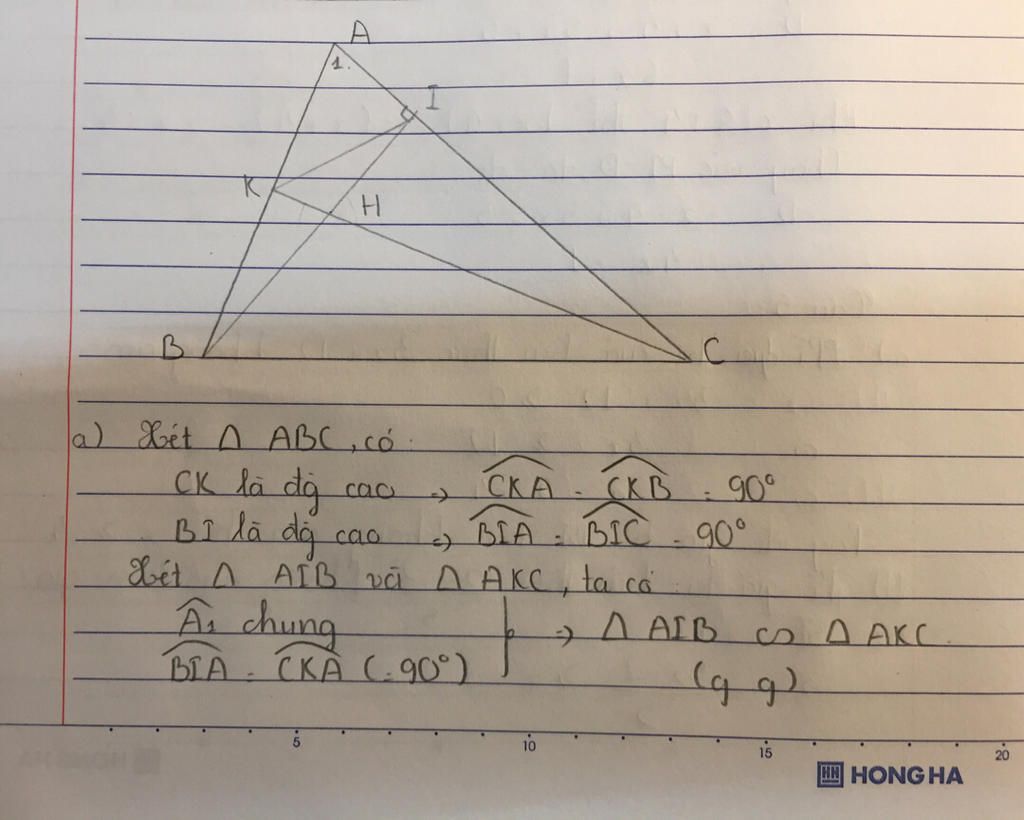 A
1.
I
K
H
B
C
a) Xét Δ ABC, có:
CK là đg cao => CKA = CKB = 90°
BI là đg cao => BIA = BIC = 90°
Xét Δ AIB và Δ AKC, ta có:
A₁ chung
=> Δ AIB ∽ Δ AKC.
BIA = CKA (=90°)
(g g)
5 10 15 20
HH HONG HA